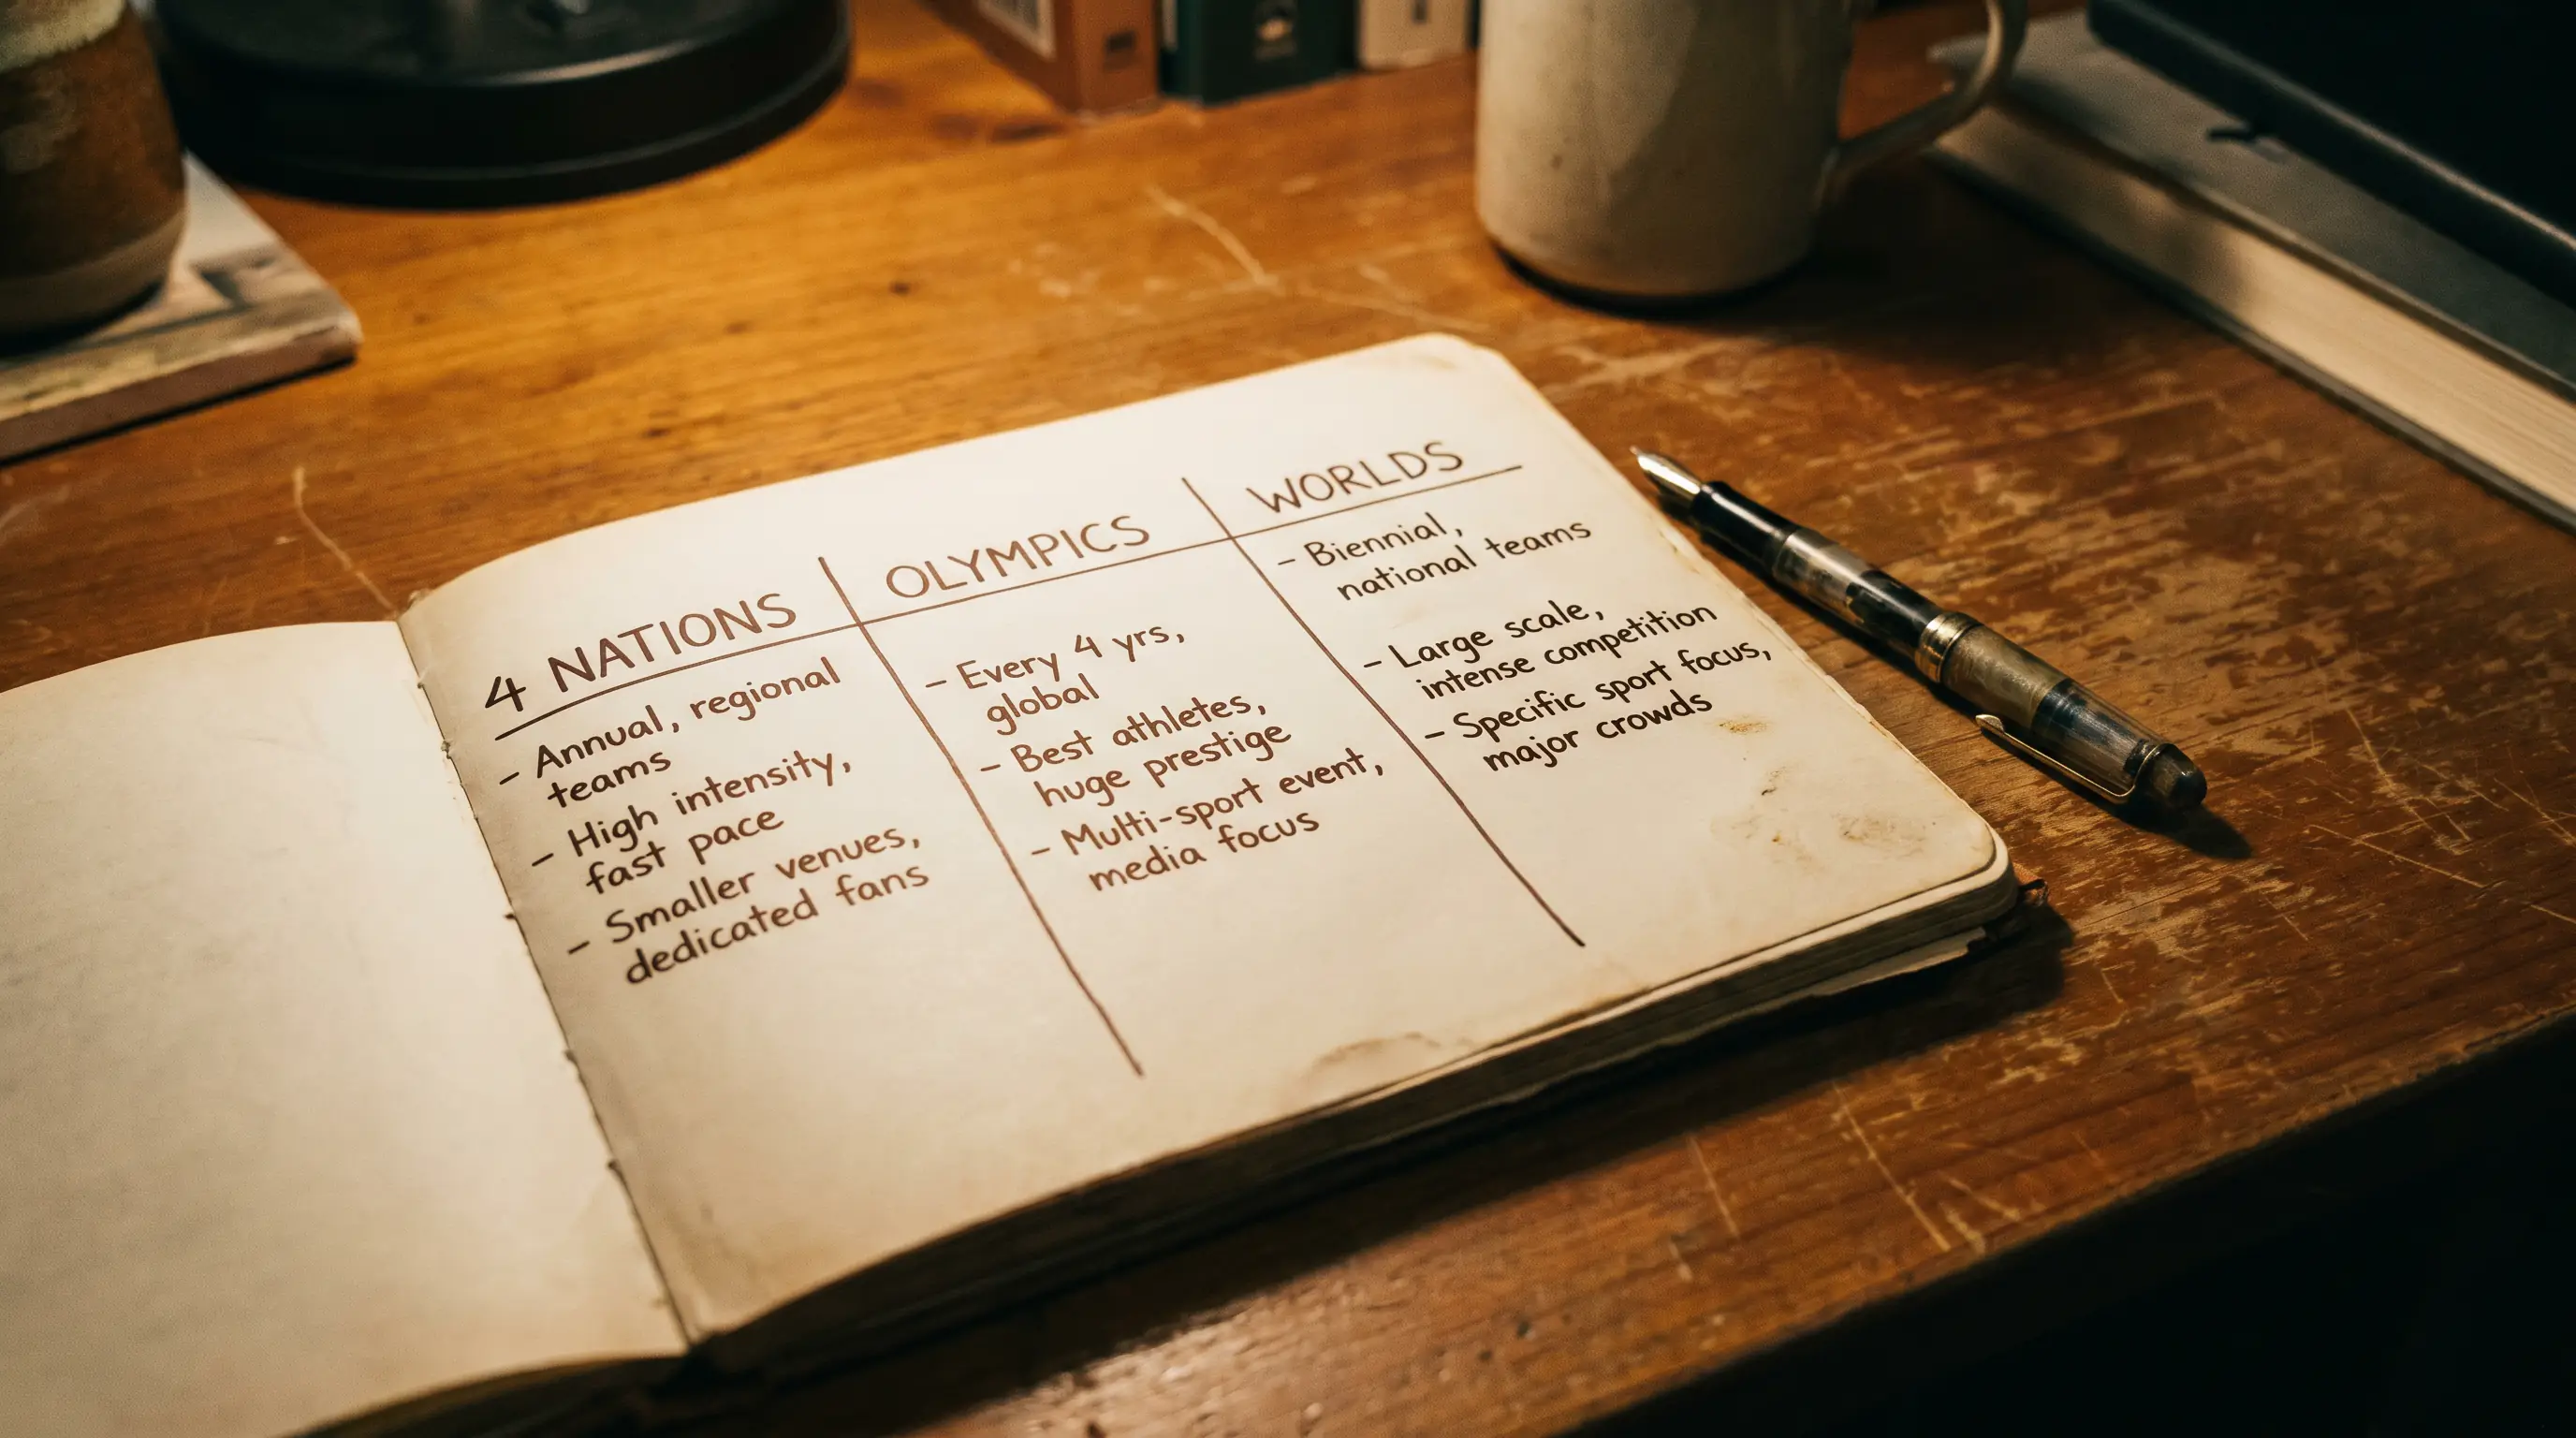 4 NATIONS
- Annual, regional
teams
- High intensity,
fast pace
- Smaller venues,
dedicated fans
OLYMPICS
- Every 4 yrs,
global
- Best athletes,
huge prestige
- Multi-sport event,
media focus
WORLDS
- Biennial,
national teams
- Large scale,
intense competition
- Specific sport focus,
major crowds